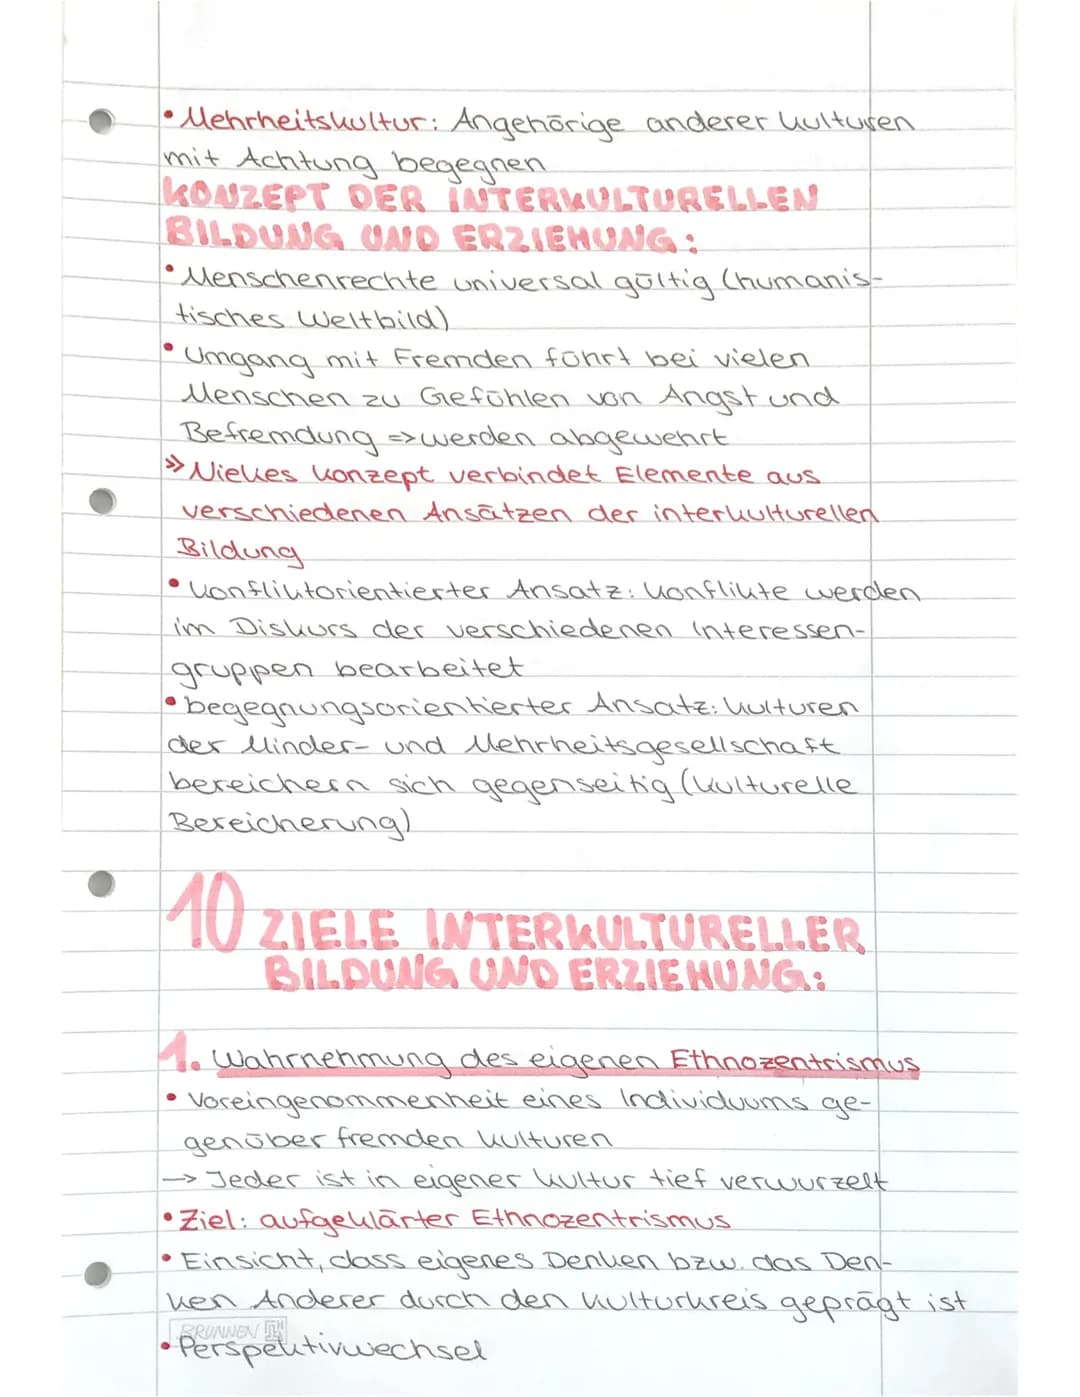 • Mehrheitskultur: Angehörige anderer Kulturen
mit Achtung begegnen
KONZEPT DER INTERKULTURELLEN
BILDUNG UND ERZIEHUNG:
• Menschenrechte universal gültig (humanis-
tisches Weltbild)
• Umgang mit Fremden führt bei vielen
Menschen zu Gefühlen von Angst und
Befremdung => werden abgewehrt
» Niekes Konzept verbindet Elemente aus
verschiedenen Ansätzen der interkulturellen
Bildung
• Konfliktorientierter Ansatz: Konflikte werden
im Diskurs der verschiedenen Interessen-
gruppen bearbeitet
• begegnungsorientierter Ansatz: Kulturen
der Minder- und Mehrheitsgesellschaft
bereichern sich gegenseitig (kulturelle
Bereicherung)
10 ZIELE INTERKULTURELLER
BILDUNG UND ERZIEHUNG:
1. Wahrnehmung des eigenen Ethnozentrismus
• Voreingenommenheit eines Individuums ge-
genüber fremden Kulturen
-> Jeder ist in eigener Kultur tief verwurzelt
• Ziel: aufgeklärter Ethnozentrismus
• Einsicht, dass eigenes Denken bzw. das Den-
ken Anderer durch den Kulturkreis geprägt ist
BRUNNEN
• Perspektivwechsel